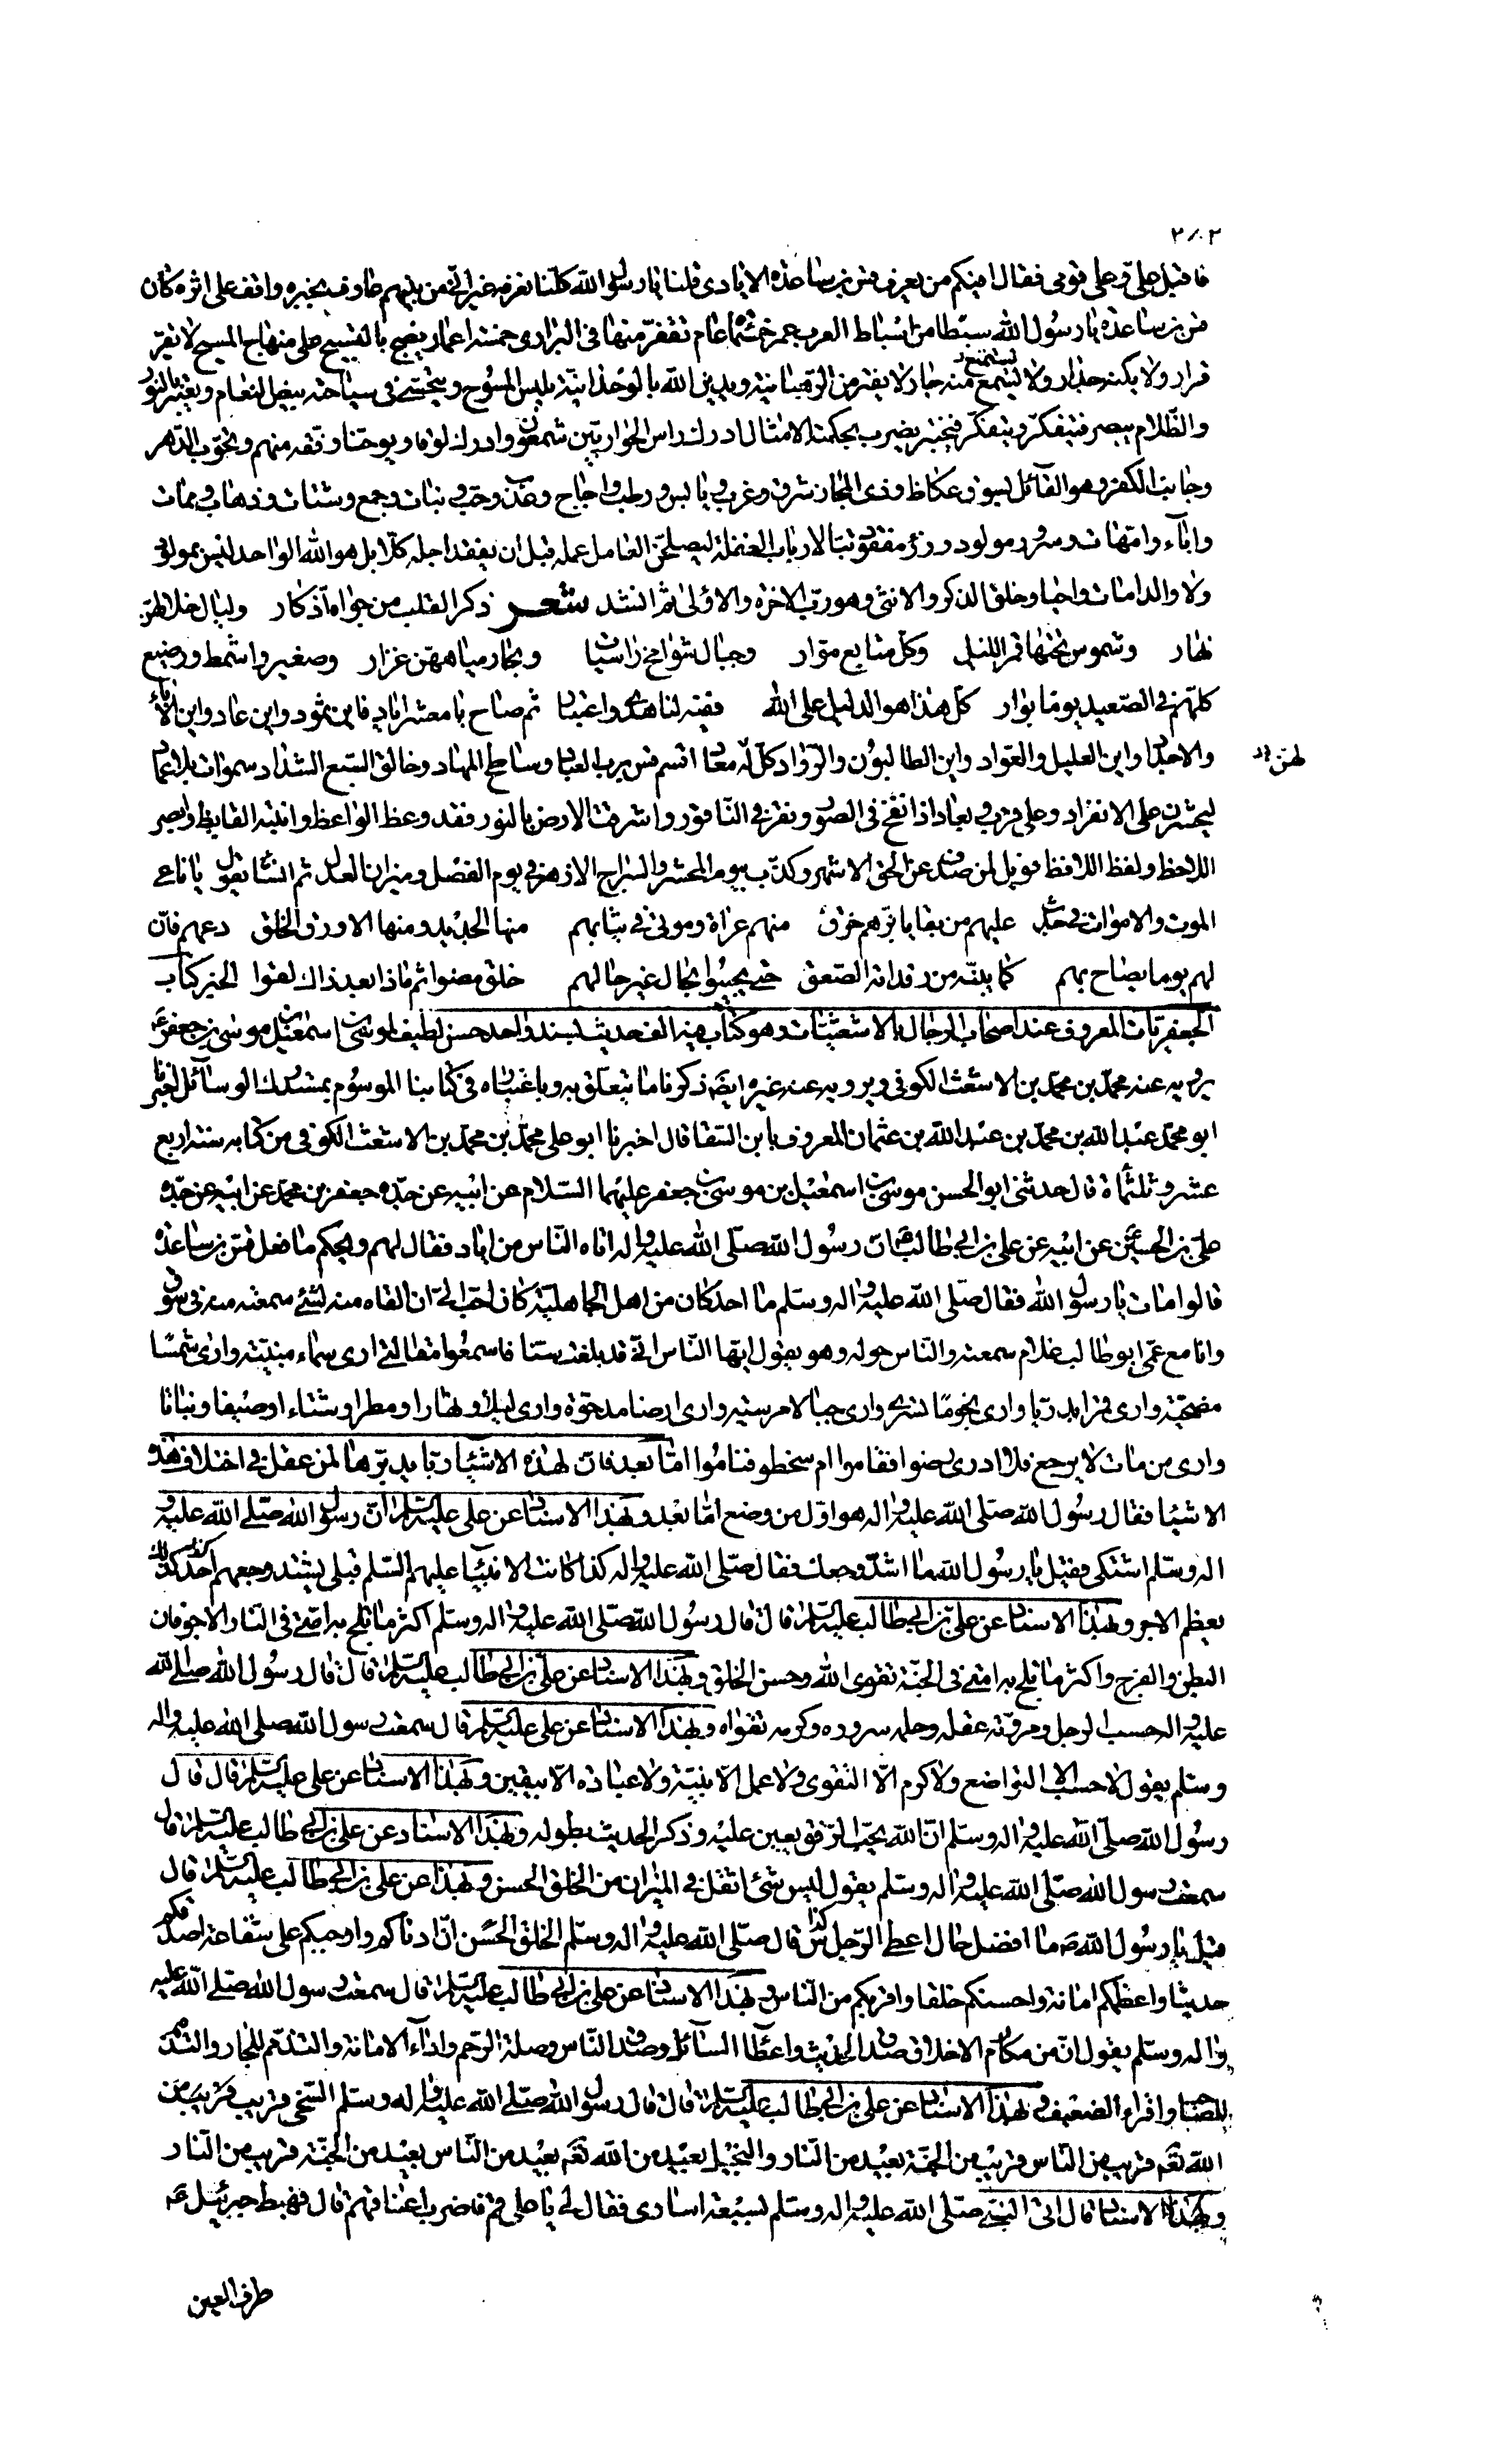 ٢٨٢
فاقبل علی وعلی قومی فقال افیکم من یعرف قس بن ساعدة الایادی قلنا یا رسول الله کلنا نعرفه غیر انی من بینهم عارف بخبره واقف علی اثره کان
قس بن ساعدة یا رسول الله سبطا من اسباط العرب عمر خمسمائة عام تقفر منها فی البراری خمسة اعمار یضج بالتسبیح علی منهاج المسیح لا یقر
قرار ولا یکنه جدار ولا یستمتع منه جار لا یفتر من الرهبانیة ویدین الله بالوحدانیة یلبس المسوح ویتحسی فی سیاحته بیض النعام ویعتبر بالنور
والظلام یبصر فیتفکر ویتفکر فیختبر یضرب بحکمته الامثال ادرک راس الحواریین شمعون وادرک لوقا ویوحنا وتفقه منهم وتحوب الدهر
وجانب الکفر وهو القائل بسوق عکاظ وذی المجاز شرق وغرب ویابس ورطب واجاج وعذب وحب ونبات وجمع وشتات وذهاب وممات
واباء وامهات وسرور مولود ورزء مفقود تبا لارباب الغفلة لیصلحن العامل عمله قبل ان یفقد اجله کلا بل هو الله الواحد لیس بمولود
ولا والد امات واحیا وخلق الذکر والانثی وهو رب الاخرة والاولی ثم انشد شعر ذکر القلب من جواه ادکار ولیال خلالهن
نهار وشموس تحتها قمر اللیل وکل متابع موار وجبال شوامخ راسیات وبحار میاههن غزار وصغیر واشمط ورضیع
کلهم فی الصعید یوما بوار کل هذا هو الدلیل علی الله ففیه لنا هدی واعتبار ثم صاح یا معشر ایاد فاین ثمود واین عاد واین الاباء
والاجداد واین العلیل والعواد واین الطالبون والرواد کل له معاد اقسم قس برب العباد وساطح المهاد وخالق السبع الشداد سموات بلا عماد
لهن
لیحشرن علی الانفراد وعلی قرب وبعاد اذا نفخ فی الصور ونقر فی الناقور واشرقت الارض بالنور فقد وعظ الواعظ وانتبه القایظ وابصر
اللاحظ ولفظ اللافظ فویل لمن صدف عن الحق الاشهر وکذب بیوم المحشر والسراج الازهر فی یوم الفصل ومیزان العدل ثم انشا یقول یا ناعی
الموت والاموات فی جدث علیهم من بقایا بزهم خرق منهم عراة وموتی فی ثیابهم منها الجدید ومنها الاورق الخلق دعهم فان
لهم یوما یصاح بهم کما ینبه من رقداته الصعق حتی یجیئوا بحال غیر حالهم خلق مضوا ثم ماذا بعد ذاک لقوا الخبر کتاب
الجعفریات المعروف عند اصحاب الرجال بالاشعثیات وهو کتاب فیه الف حدیث بسند واحد حسن لطیف لموسی بن اسمعیل بن موسی بن جعفر ع
یرویه عنه محمد بن محمد بن الاشعث الکوفی ویرویه عنه غیره ایضا ذکرنا ما یتعلق به وباعتباره فی کتابنا الموسوم بمستدرک الوسائل اخبرنا
ابو محمد عبد الله بن محمد بن عبد الله بن عثمان المعروف بابن السقا قال اخبرنا ابو علی محمد بن محمد بن الاشعث الکوفی من کتابه سنة اربع
عشر وثلثمائة قال حدثنی ابو الحسن موسی بن اسمعیل بن موسی بن جعفر علیهما السلام عن ابیه عن جده جعفر بن محمد عن ابیه عن جده
علی بن الحسین عن ابیه عن علی بن ابی طالب ع ان رسول الله صلی الله علیه واله اتاه الناس من ایاد فقال لهم ویحکم ما فعل قس بن ساعدة
قالوا مات یا رسول الله فقال صلی الله علیه واله وسلم ما احد کان من اهل الجاهلیة کان احب الی ان القاه منه لشئ سمعته منه فی سوق
وانا مع عمی ابو طالب غلام سمعته والناس حوله وهو یقول ایها الناس انی قد بلغت ستنا فاسمعوا مقالتی اری سماء مبنیة واری شمسا
مضحیة واری قمرا بدریا واری نجوما تسری واری جبالا مرسیة واری ارضا مدحوة واری لیلا ونهارا ومطرا وشتاء او صیفا ونباتا
واری من مات لا یرجع فلا ادری رضوا فقاموا ام سخطو فناموا اما بعد فان لهذه الاشیاء ربا یدبرها لمن عقل فی اختلاف هذه
الاشیاء فقال رسول الله صلی الله علیه واله هو اول من وضع اما بعد وبهذا الاسناد عن علی علیه السلام ان رسول الله صلی الله علیه و
اله وسلم اشتکی فقیل یا رسول الله ما اشد وجعک فقال صلی الله علیه واله کذا کانت الانبیاء علیهم السلم قبلی یشتد وجعهم کذلک
یعظم الاجر وبهذا الاسناد عن علی بن ابی طالب علیه السلم قال قال رسول الله صلی الله علیه واله وسلم اکثر ما یلج به امتی فی النار الاجوفان
البطن والفرج واکثر ما یلج به امتی فی الجنة تقوی الله وحسن الخلق وبهذا الاسناد عن علی بن ابی طالب علیه السلم قال قال رسول الله صلی الله
علیه واله حسب الرجل ومروته عقله وحلمه سروره وکرمه تقواه وبهذا الاسناد عن علی علیه السلم قال سمعت رسول الله صلی الله علیه واله
وسلم یقول لا حسب الا التواضع ولا کرم الا التقوی ولا عمل الا بنیة ولا عبادة الا بیقین وبهذا الاسناد عن علی علیه السلم قال قال
رسول الله صلی الله علیه واله وسلم ان الله یحب الرفق ویعین علیه وذکر الحدیث بطوله وبهذا الاسناد عن علی بن ابی طالب علیه السلم قال
سمعت رسول الله صلی الله علیه واله وسلم یقول لیس شئ اثقل فی المیزان من الخلق الحسن وبهذا عن علی بن ابی طالب علیه السلم قال
قیل یا رسول الله ص ما افضل حال اعطی الرجل کذا قال صلی الله علیه واله وسلم الخلق الحسن ان ادناکم واوجبکم علی شفاعة اصدقکم
حدیثا واعظمکم امانة واحسنکم خلقا واقربکم من الناس وبهذا الاسناد عن علی بن ابی طالب علیه السلم قال سمعت رسول الله صلی الله علیه
واله وسلم یقول ان من مکارم الاخلاق صدق الحدیث واعطاء السائل وصدق الناس وصلة الرحم واداء الامانة والتذمم للجار والتذمم
للصاحب واقراء الضعیف وبهذا الاسناد عن علی بن ابی طالب علیه السلم قال قال رسول الله صلی الله علیه واله وسلم السخی قریب قریب من
الله تعم قریب من الناس قریب من الجنة بعید من النار والبخیل بعید من الله تعم بعید من الناس بعید من الجنة قریب من النار
وبهذا الاسناد قال اتی النبی صلی الله علیه واله وسلم بسبعة اساری فقال لی یا علی قم فاضرب اعناقهم قال فهبط جبرئیل ع
طرف العین